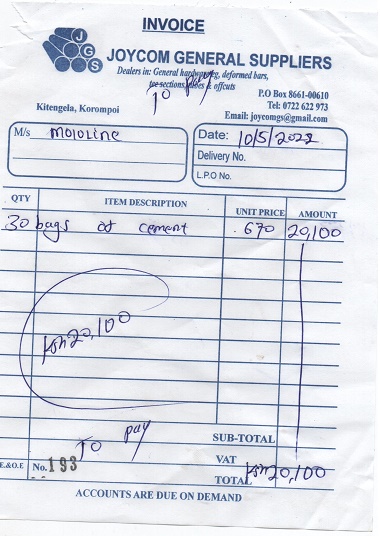 INVOICE
JGS
JOYCOM GENERAL SUPPLIERS
Dealers in: General hardwares, deformed bars,
tee sections, tubes & offcuts
To pay
P.O Box 8661-00610
Tel: 0722 622 973
Email: joycomgs@gmail.com
Kitengela, Korompoi
M/s Mololine
Date: 10/5/2022
Delivery No.
L.P.O No.
QTY ITEM DESCRIPTION UNIT PRICE AMOUNT
30 bags of cement 670 20,100
Ksh 20,100
To pay
SUB-TOTAL
VAT
E.&O.E No. 193
TOTAL Ksh 20,100
ACCOUNTS ARE DUE ON DEMAND